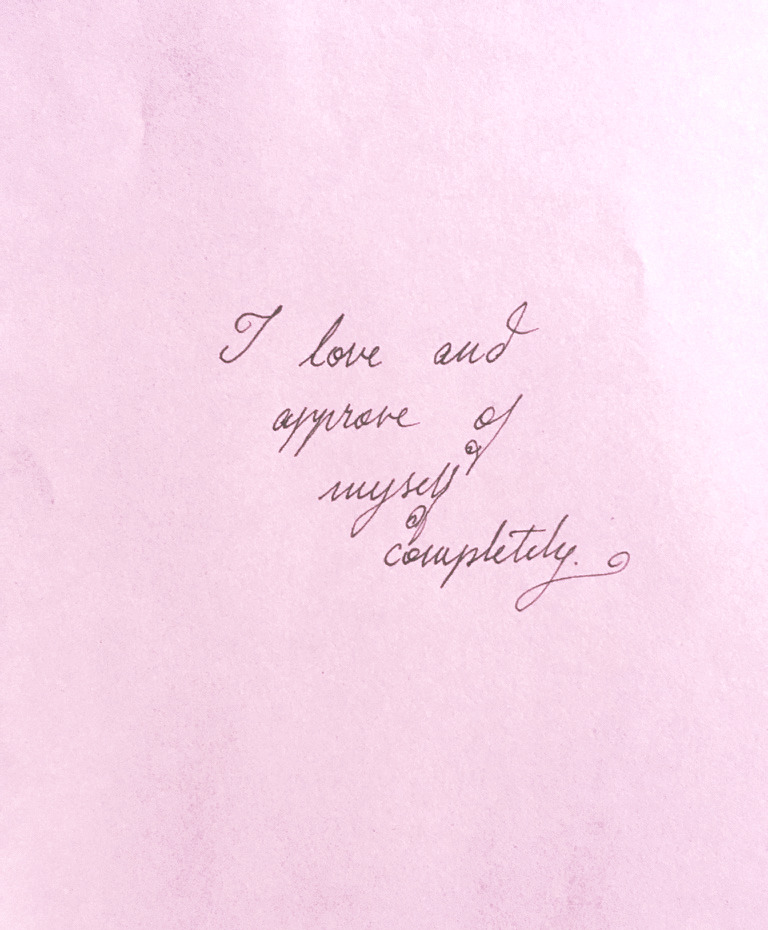 I love and
approve of
myself
completely.